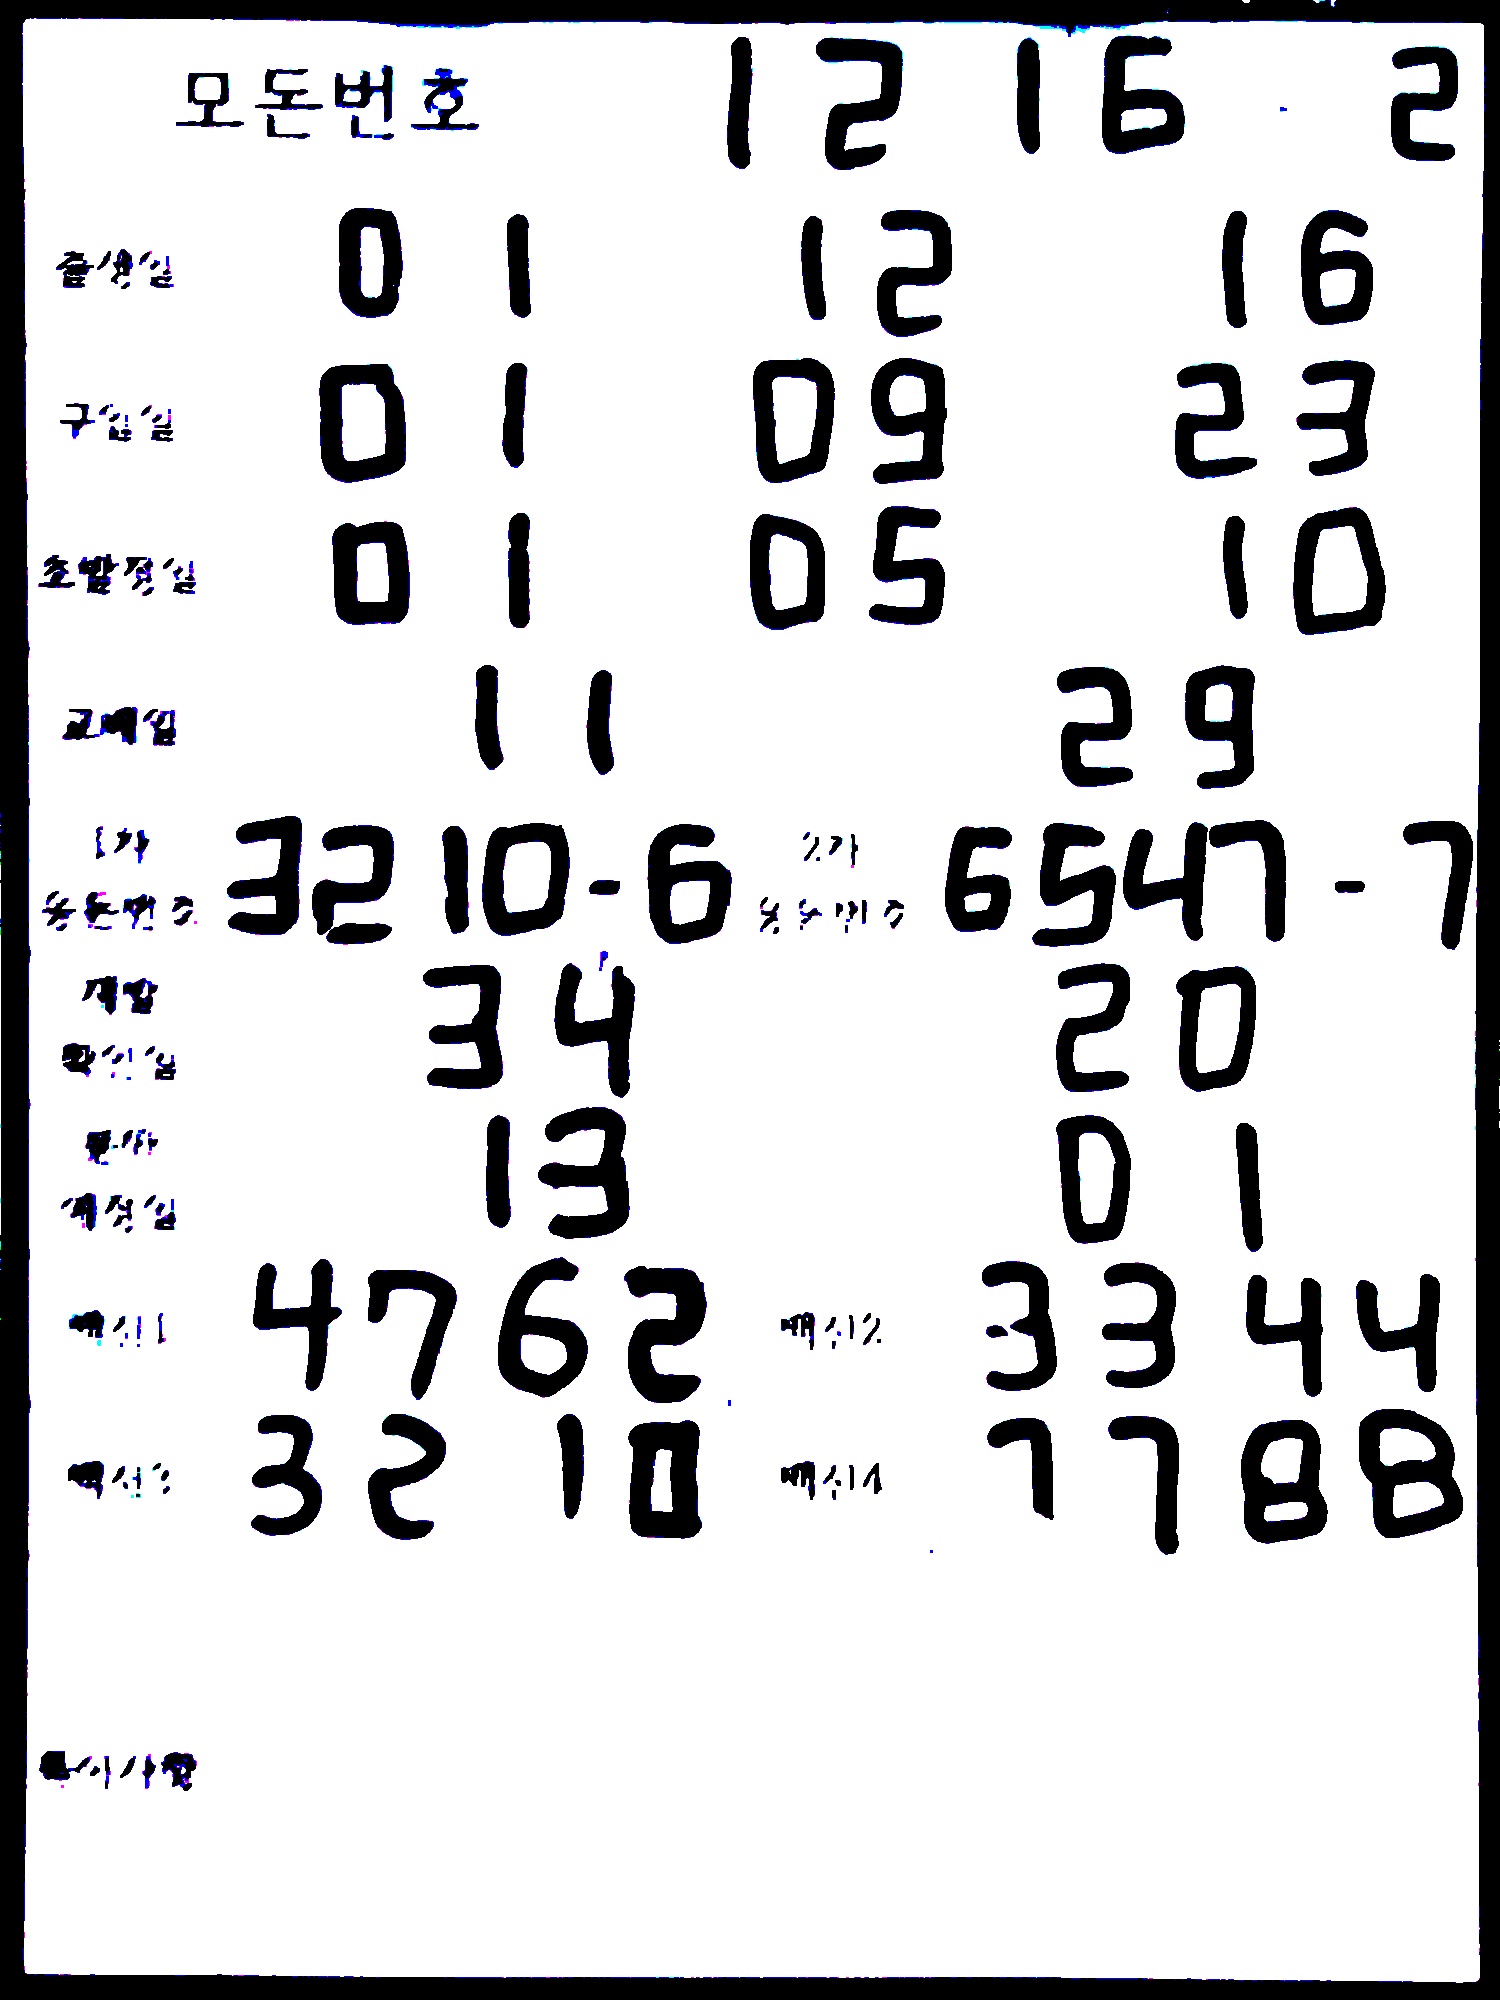 모돈번호 12 16 - 2
출생일 01 12 16
구입일 01 09 23
초발정일 01 05 10
교배일 11 29
1차 웅돈번호 3210-6 2차 웅돈번호 6547-7
재발 확인일 34 20
분만 예정일 13 01
백신1 4762 백신2 3344
백신3 3210 백신4 7788
특이사항